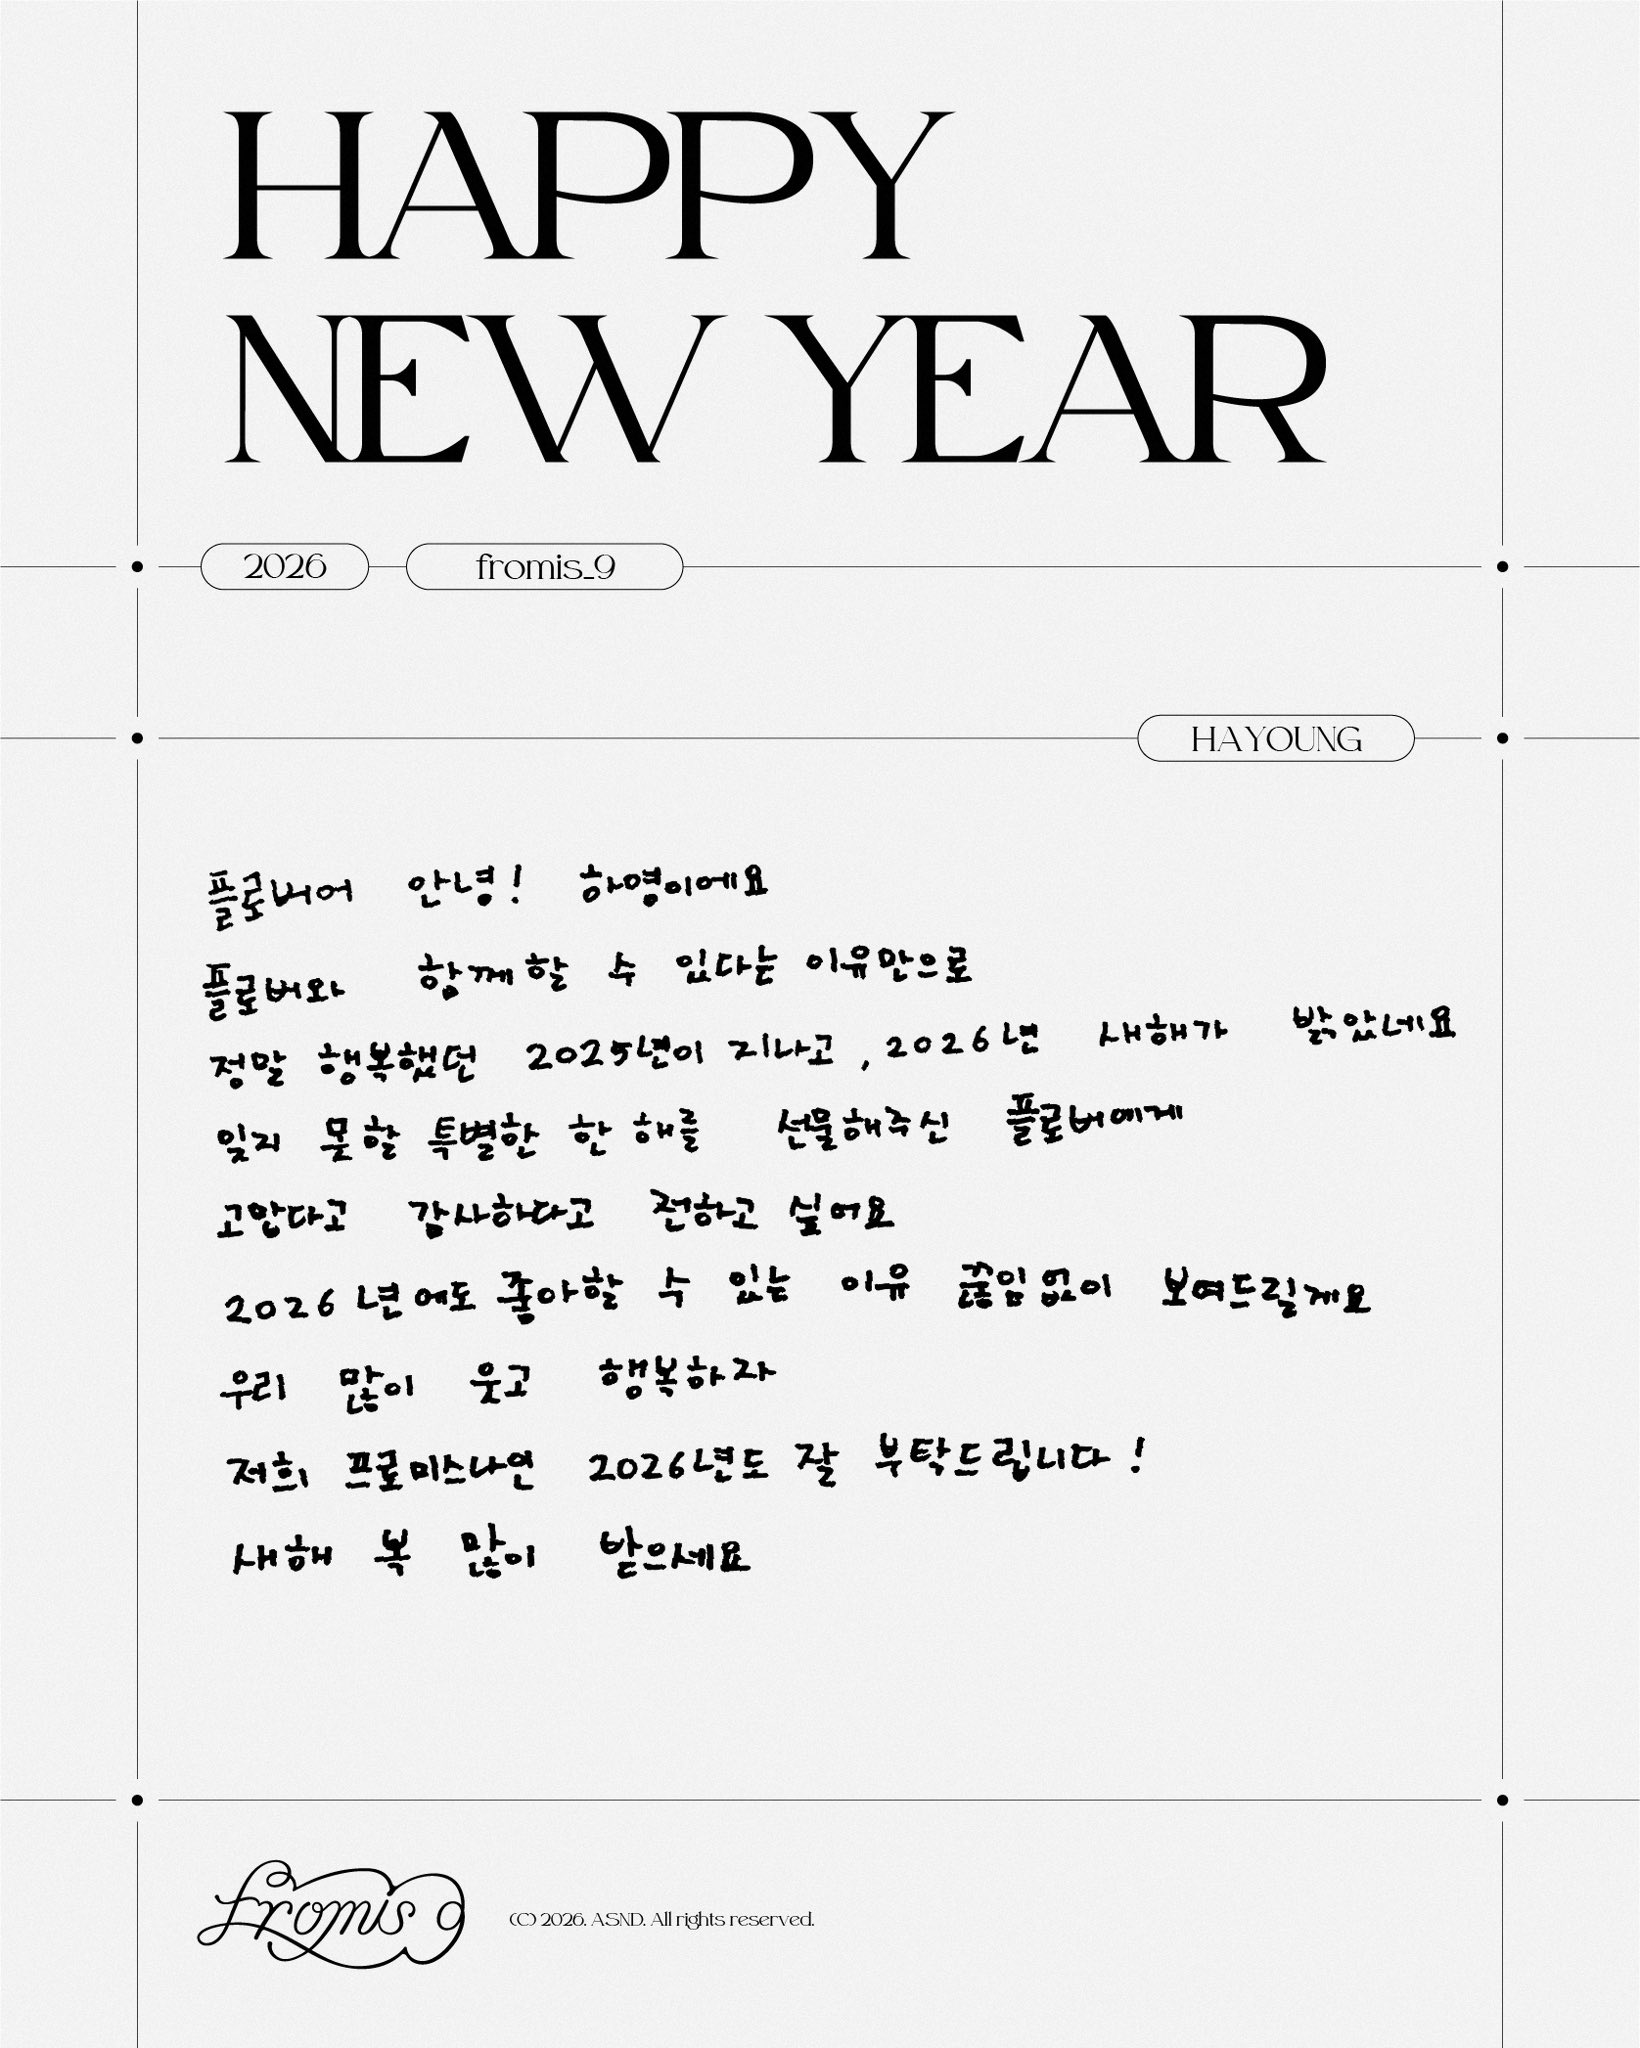 HAPPY
NEW YEAR
2026 fromis_9
HAYOUNG
플로버어 안녕! 하영이에요
플로버와 함께할 수 있다는 이유만으로
정말 행복했던 2025년이 지나고, 2026년 새해가 밝았네요
잊지 못할 특별한 한 해를 선물해주신 플로버에게
고맙다고 감사하다고 전하고 싶어요
2026년에도 좋아할 수 있는 이유 끊임없이 보여드릴게요
우리 많이 웃고 행복하자
저희 프로미스나인 2026년도 잘 부탁드립니다!
새해 복 많이 받으세요
fromis 9
(C) 2026. ASND. All rights reserved.